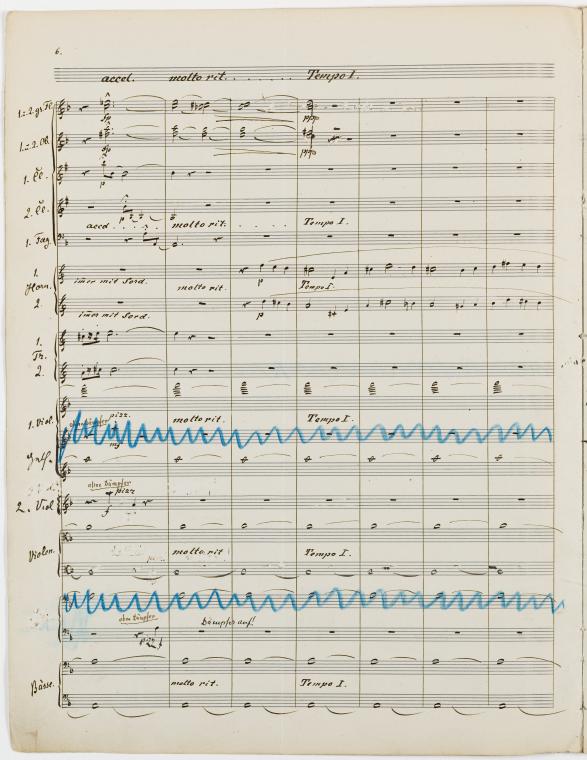 6.
accel. molto rit. . . . . . . . Tempo I.
1.u.2.gr.Fl.
sfp ppp
1.u.2.Ob.
sfp ppp
1. Cl.
p
2. Cl.
accel . . . . molto rit. Tempo I.
1. Fag.
1.
im̄er mit Sord. molto rit. p Tempo I.
Horn.
2.
im̄er mit Sord. p
1.
Th.
2.
ohne Dämpfer pizz.
1. Viol. molto rit. Tempo I.
mf
ohne Dämpfer
pizz
2. Viol
f
Violen. molto rit Tempo I.
ohne Dämpfer Dämpfer auf!
pizz
Bässe. molto rit. Tempo I.